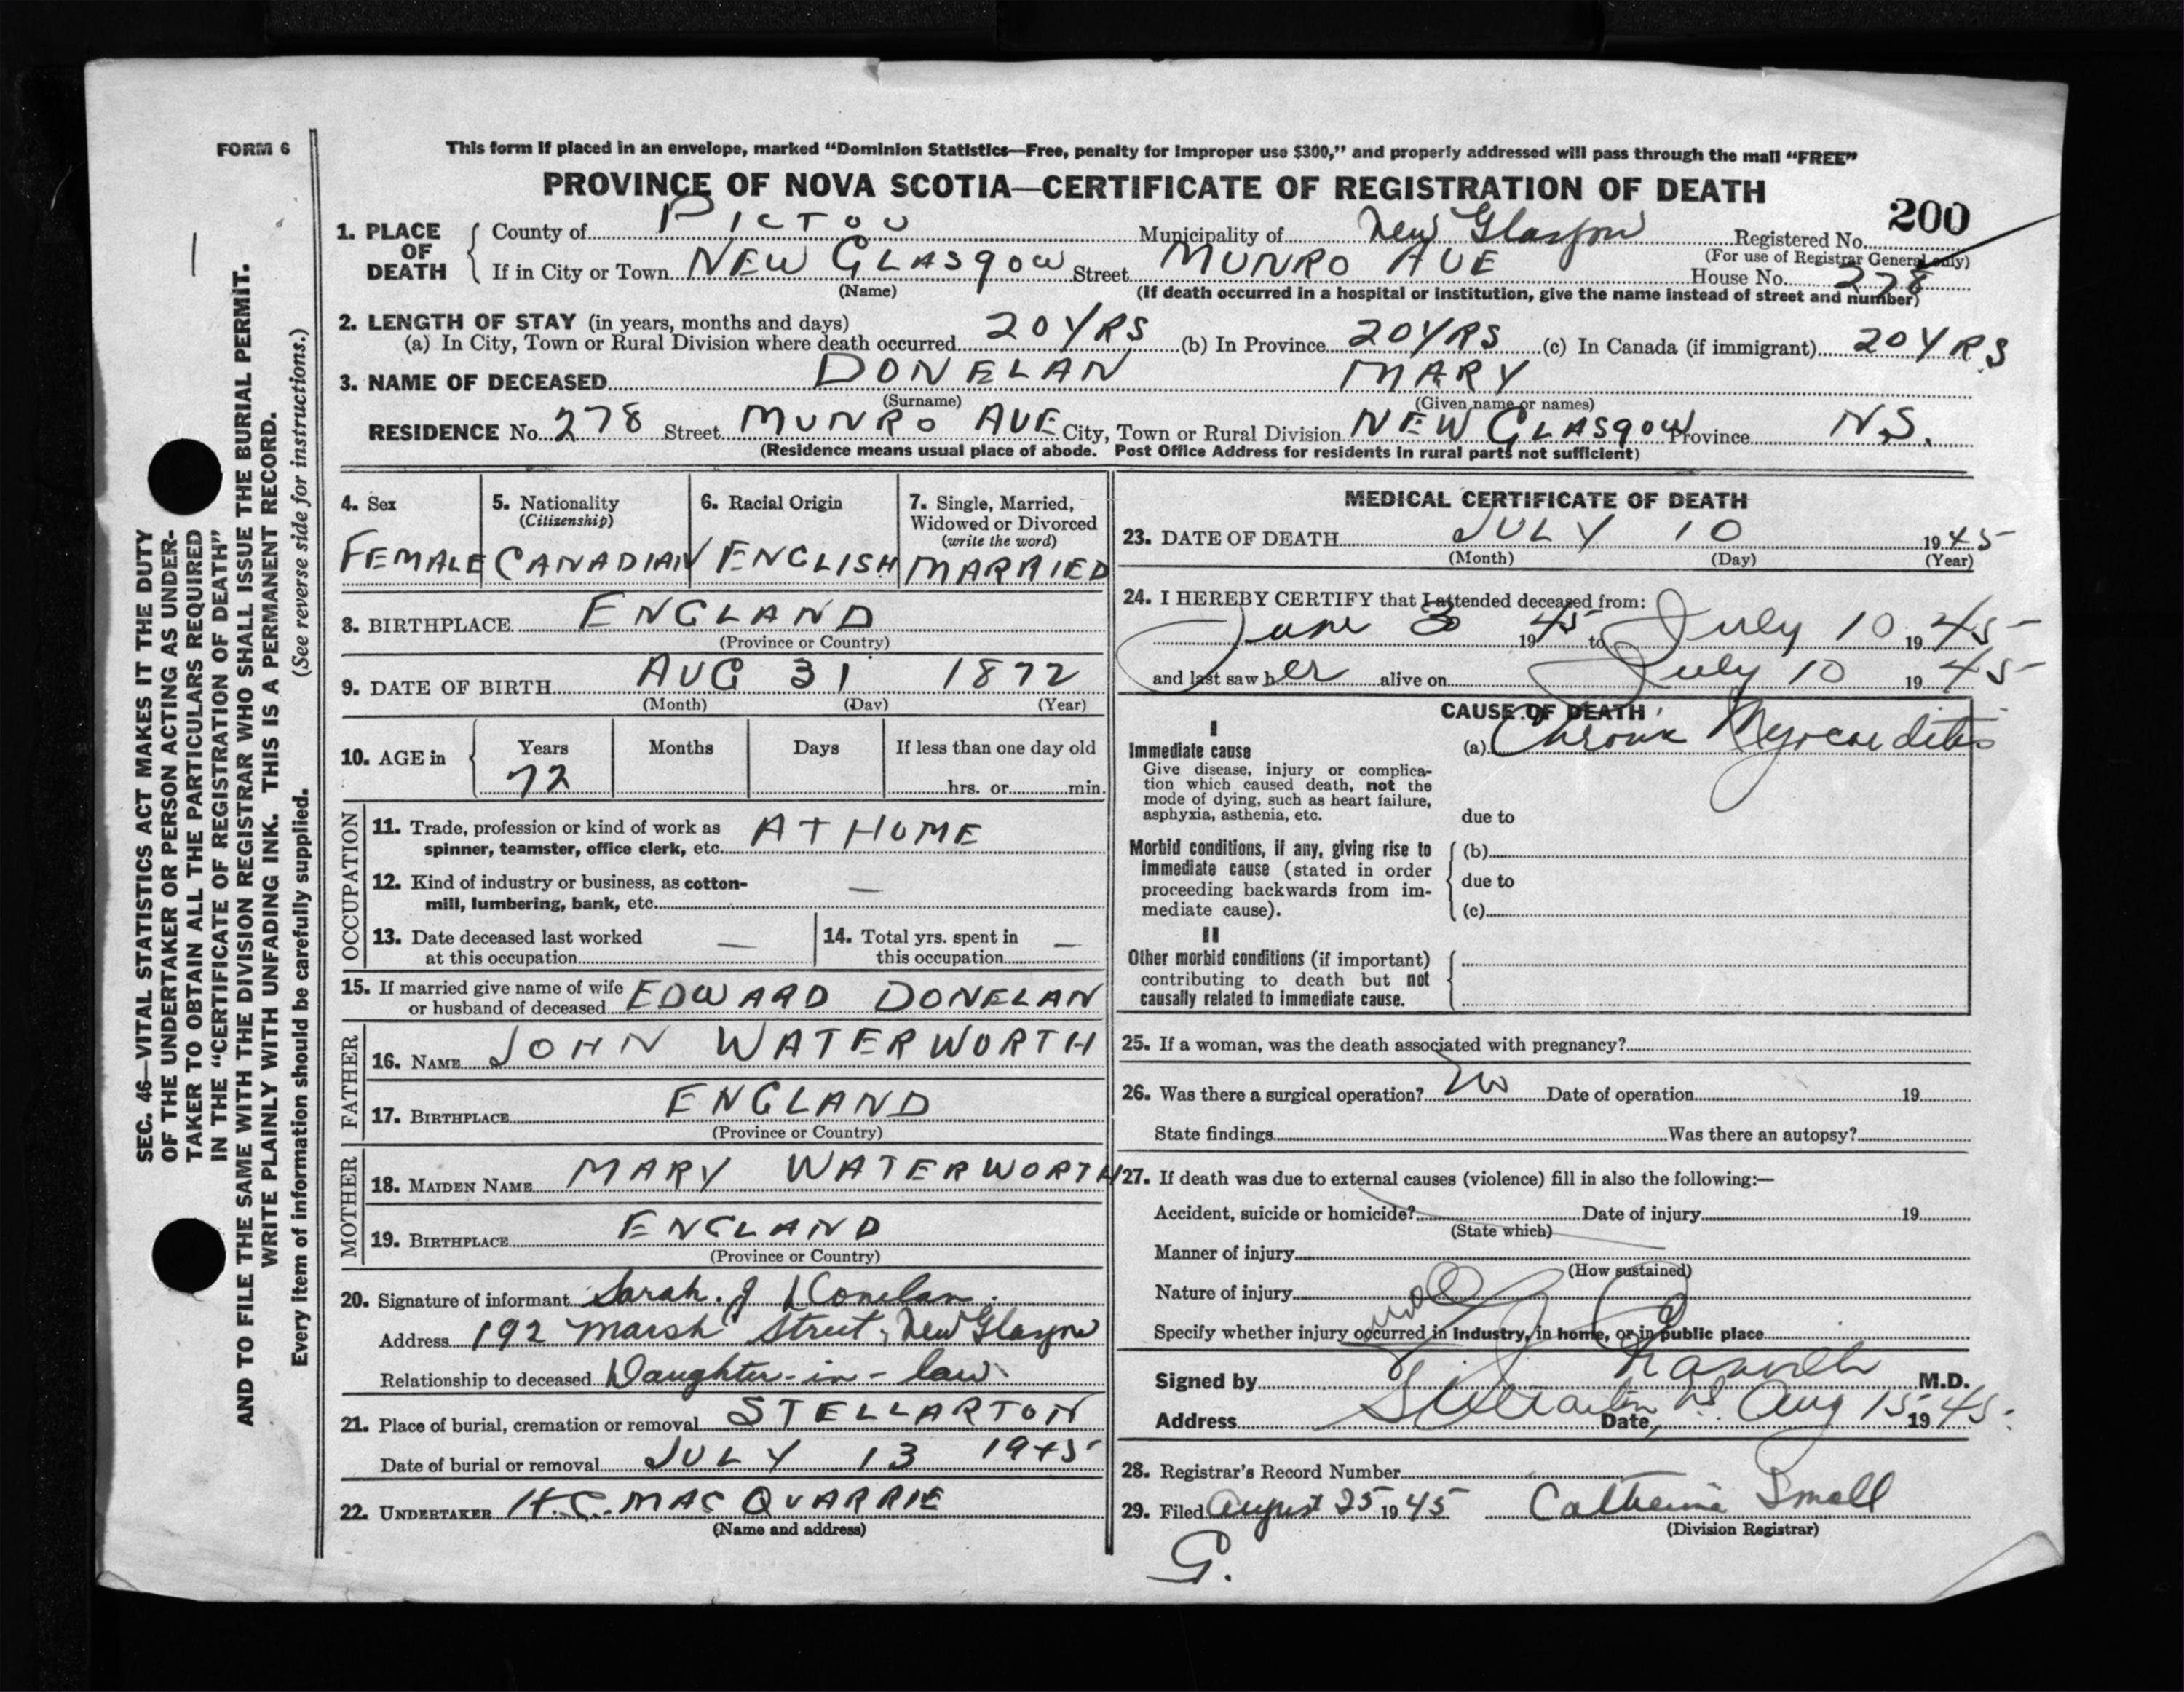 FORM 6
This form if placed in an envelope, marked "Dominion Statistics—Free, penalty for improper use $300," and properly addressed will pass through the mail "FREE"
PROVINCE OF NOVA SCOTIA—CERTIFICATE OF REGISTRATION OF DEATH
200
1. PLACE OF DEATH
County of PICTOU Municipality of New Glasgow Registered No.
(For use of Registrar General only)
If in City or Town NEW GLASGOW Street MUNRO AVE House No. 278
(Name) (If death occurred in a hospital or institution, give the name instead of street and number)
2. LENGTH OF STAY (in years, months and days)
(a) In City, Town or Rural Division where death occurred 20 YRS (b) In Province 20 YRS (c) In Canada (if immigrant) 20 YRS
3. NAME OF DECEASED DONELAN MARY
(Surname) (Given name or names)
RESIDENCE No. 278 Street MUNRO AVE City, Town or Rural Division NEW GLASGOW Province N.S.
(Residence means usual place of abode. Post Office Address for residents in rural parts not sufficient)
4. Sex
FEMALE
5. Nationality
(Citizenship)
CANADIAN
6. Racial Origin
ENGLISH
7. Single, Married,
Widowed or Divorced
(write the word)
MARRIED
8. BIRTHPLACE ENGLAND
(Province or Country)
9. DATE OF BIRTH AUG 31 1872
(Month) (Day) (Year)
10. AGE in
Years Months Days If less than one day old
72 hrs. or min.
OCCUPATION
11. Trade, profession or kind of work as
spinner, teamster, office clerk, etc. AT HOME
12. Kind of industry or business, as cotton-
mill, lumbering, bank, etc. —
13. Date deceased last worked
at this occupation —
14. Total yrs. spent in
this occupation —
15. If married give name of wife
or husband of deceased EDWARD DONELAN
FATHER
16. NAME JOHN WATERWORTH
17. BIRTHPLACE ENGLAND
(Province or Country)
MOTHER
18. MAIDEN NAME MARY WATERWORTH
19. BIRTHPLACE ENGLAND
(Province or Country)
20. Signature of informant Sarah. J
Address 192 Marsh Street, New Glasgow
Relationship to deceased Daughter-in-law
21. Place of burial, cremation or removal STELLARTON
Date of burial or removal JULY 13 1945
22. UNDERTAKER H.C. MACQUARRIE
(Name and address)
MEDICAL CERTIFICATE OF DEATH
23. DATE OF DEATH JULY 10 1945
(Month) (Day) (Year)
24. I HEREBY CERTIFY that I attended deceased from:
June 3 1945 to July 10 1945
and last saw her alive on July 10 1945
CAUSE OF DEATH
I
Immediate cause
Give disease, injury or complica-
tion which caused death, not the
mode of dying, such as heart failure,
asphyxia, asthenia, etc.
(a) Chronic Myocarditis
due to
Morbid conditions, if any, giving rise to
immediate cause (stated in order
proceeding backwards from im-
mediate cause).
(b)
due to
(c)
II
Other morbid conditions (if important)
contributing to death but not
causally related to immediate cause.
25. If a woman, was the death associated with pregnancy?
26. Was there a surgical operation? No Date of operation 19
State findings Was there an autopsy?
27. If death was due to external causes (violence) fill in also the following:—
Accident, suicide or homicide? Date of injury 19
(State which)
Manner of injury
(How sustained)
Nature of injury
Specify whether injury occurred in industry, in home, or in public place
Signed by M.D.
Address Date Aug 15 1945.
28. Registrar's Record Number
29. Filed August 25 1945 Catherine Small
(Division Registrar)
G.
SEC. 46—VITAL STATISTICS ACT MAKES IT THE DUTY
OF THE UNDERTAKER OR PERSON ACTING AS UNDER-
TAKER TO OBTAIN ALL THE PARTICULARS REQUIRED
IN THE "CERTIFICATE OF REGISTRATION OF DEATH"
AND TO FILE THE SAME WITH THE DIVISION REGISTRAR WHO SHALL ISSUE THE BURIAL PERMIT.
WRITE PLAINLY WITH UNFADING INK. THIS IS A PERMANENT RECORD.
Every item of information should be carefully supplied. (See reverse side for instructions.)